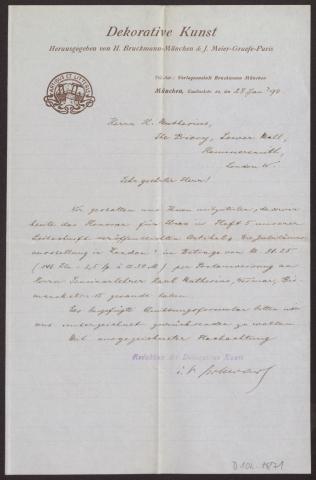 Dekorative Kunst
Herausgegeben von H. Bruckmann-München & J. Meier-Graefe-Paris
Verlagsanstalt Bruckmann München
München, den 28 Jan
Herrn H. Muthesius,
The Priory, Lower Mall,
Hammersmith,
London W.
Sehr geehrter Herr!
Wir gestatten uns Ihnen mitzuteilen, dass wir
heute das Honorar für Ihren in Heft 5 unserer
Zeitschrift veröffentlichten Artikel
ausstellung in London" im Betrage von M.
per Postanweisung an
Herrn Seminarlehrer Karl Muthesius, Weimar,
gesandt haben.
Das beigefügte Quittungsformular bitten wir
uns unterzeichnet zurücksenden zu wollen
Mit ausgezeichneter Hochachtung
Redaktion der Dekorativen Kunst
D 102-1871